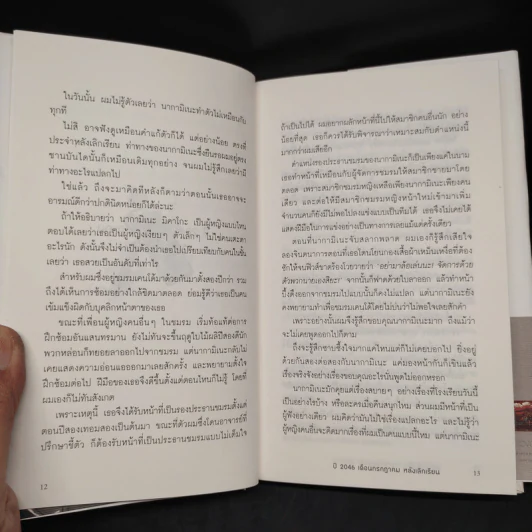 ในวันนั้น ผมไม่รู้ตัวเลยว่า นากามิเนะทำตัวไม่เหมือนกับ
ทุกที
ไม่สิ อาจฟังดูเหมือนคำแก้ตัวก็ได้ แต่อย่างน้อย ตรงที่
ประจำหลังเลิกเรียน ท่าทางของนากามิเนะซึ่งยืนรอผมอยู่ตรง
ชานบันไดนั้นก็เหมือนเดิมทุกอย่าง จนผมไม่รู้สึกเลยว่ามี
ท่าทางอะไรแปลกไป
ใช่แล้ว ถึงจะมาคิดทีหลังก็ตามว่าตอนนั้นเธออาจจะ
อารมณ์ดีกว่าปกตินิดหน่อยก็ได้ละนะ
ถ้าให้อธิบายว่า นากามิเนะ มิคาโกะ เป็นผู้หญิงแบบไหน
ตอบได้เลยว่าเธอเป็นผู้หญิงเงียบๆ ตัวเล็กๆ ไม่ใช่คนสะดุดตา
อะไรนัก ดังนั้นจึงไม่จำเป็นต้องนำเธอไปเปรียบเทียบกับคนในชั้น
เลยว่า เธอสวยเป็นอันดับที่เท่าไร
สำหรับผมซึ่งอยู่ชมรมเคนโด้มาด้วยกันมาตั้งสองปีกว่า รวม
ถึงได้เห็นการซ้อมอย่างใกล้ชิดมาตลอด ย่อมรู้ดีว่าเธอเป็นคน
เข้มแข็งผิดกับบุคลิกหน้าตาของเธอ
ขณะที่เพื่อนผู้หญิงคนอื่นๆ ในชมรม เริ่มท้อแท้ต่อการ
ฝึกซ้อมอันแสนทรมาน ยังไม่ทันจะขึ้นฤดูใบไม้ผลิปีสองดีนัก
พวกหล่อนก็ทยอยลาออกไปจากชมรม แต่นากามิเนะกลับไม่
เคยแสดงความอ่อนแอออกมาเลยสักครั้ง และพยายามตั้งใจ
ฝึกซ้อมต่อไป ฝีมือของเธอจึงดีขึ้นตั้งแต่ตอนไหนก็ไม่รู้ โดยที่
ผมเองก็ไม่ทันสังเกต
เพราะเหตุนี้ เธอจึงได้รับหน้าที่เป็นรองประธานชมรมตั้งแต่
ตอนปีสองเทอมสองเป็นต้นมา ขณะที่ตัวผมซึ่งโดนอาจารย์ที่
ปรึกษาชี้ตัว ก็ต้องรับหน้าที่เป็นประธานชมรมแบบไม่เต็มใจ
12
ถ้าเป็นไปได้ ผมอยากผลักหน้าที่นี้ไปให้สมาชิกคนอื่นนัก อย่าง
น้อยที่สุด เธอก็ควรได้รับพิจารณาว่าเหมาะสมกับตำแหน่งนี้
มากกว่าผมเสียอีก
ตำแหน่งรองประธานชมรมของนากามิเนะก็เป็นเพียงแค่ในนาม
เธอทำหน้าที่เหมือนกับผู้จัดการชมรมให้สมาชิกชายมาโดย
ตลอด เพราะสมาชิกชมรมหญิงเหลือเพียงนากามิเนะเพียงคน
เดียว และต่อให้มีสมาชิกชมรมหญิงหน้าใหม่เข้ามาเพิ่ม
จำนวนคนก็ยังมีไม่พอไปลงแข่งแบบเป็นทีมได้ เธอจึงไม่เคยได้
แสดงฝีมือในการแข่งอย่างเป็นทางการเลยแม้แต่ครั้งเดียว
ตอนที่นากามิเนะจับสลากพลาด ผมเองก็รู้สึกเสียใจ
ลองจนกันดาการตอนที่เธอโดนโยนกองเสื้อผ้าเหม็นเหงื่อที่ต้อง
ซักให้จนฟิวส์ขาดร้องโวยวายว่า 'อย่ามาล้อเล่นนะ! จัดการด้วย
ตัวพวกนายเองสิยะ!' จากนั้นก็ฟาดด้วยใบดาดออก แล้วทำหน้า
บึ้งตึงออกจากชมรมไปแบบนั้นก็คงไม่แปลก แต่นากามิเนะยัง
คงพยายามทำเพื่อชมรมเคนโด้โดยไม่บ่นว่าไม่พอใจเลยสักคำ
เพราะอย่างนั้นผมจึงรู้สึกขอบคุณนากามิเนะมาก ถึงแม้ว่า
จะไม่เคยพูดออกไปก็ตาม
ถึงจะรู้สึกซาบซึ้งใจมากแค่ไหนแต่ก็ไม่เคยบอกไป ยิ่งอยู่
ด้วยกันสองต่อสองกับนากามิเนะ แค่มองหน้ากันก็เขินแล้ว
เรื่องจริงจังอย่างเรื่องขอบคุณอะไรนั่นพูดไม่ออกหรอก
นากามิเนะมักคุยแต่เรื่องสบายๆ อย่างเรื่องที่โรงเรียนวันนี้
เป็นอย่างไรบ้าง หรือละครเมื่อคืนสนุกไหม ส่วนผมมีหน้าที่เป็น
ผู้ฟังอย่างเดียว ผมคิดว่ามันไม่ใช่เรื่องแปลกอะไร และไม่รู้ว่า
ผู้หญิงคนอื่นจะคิดมากเรื่องที่ผมเป็นคนแบบนี้ไหม แต่นากามิเนะ
ปี 2046 เดือนกรกฎาคม หลังเลิกเรียน 13